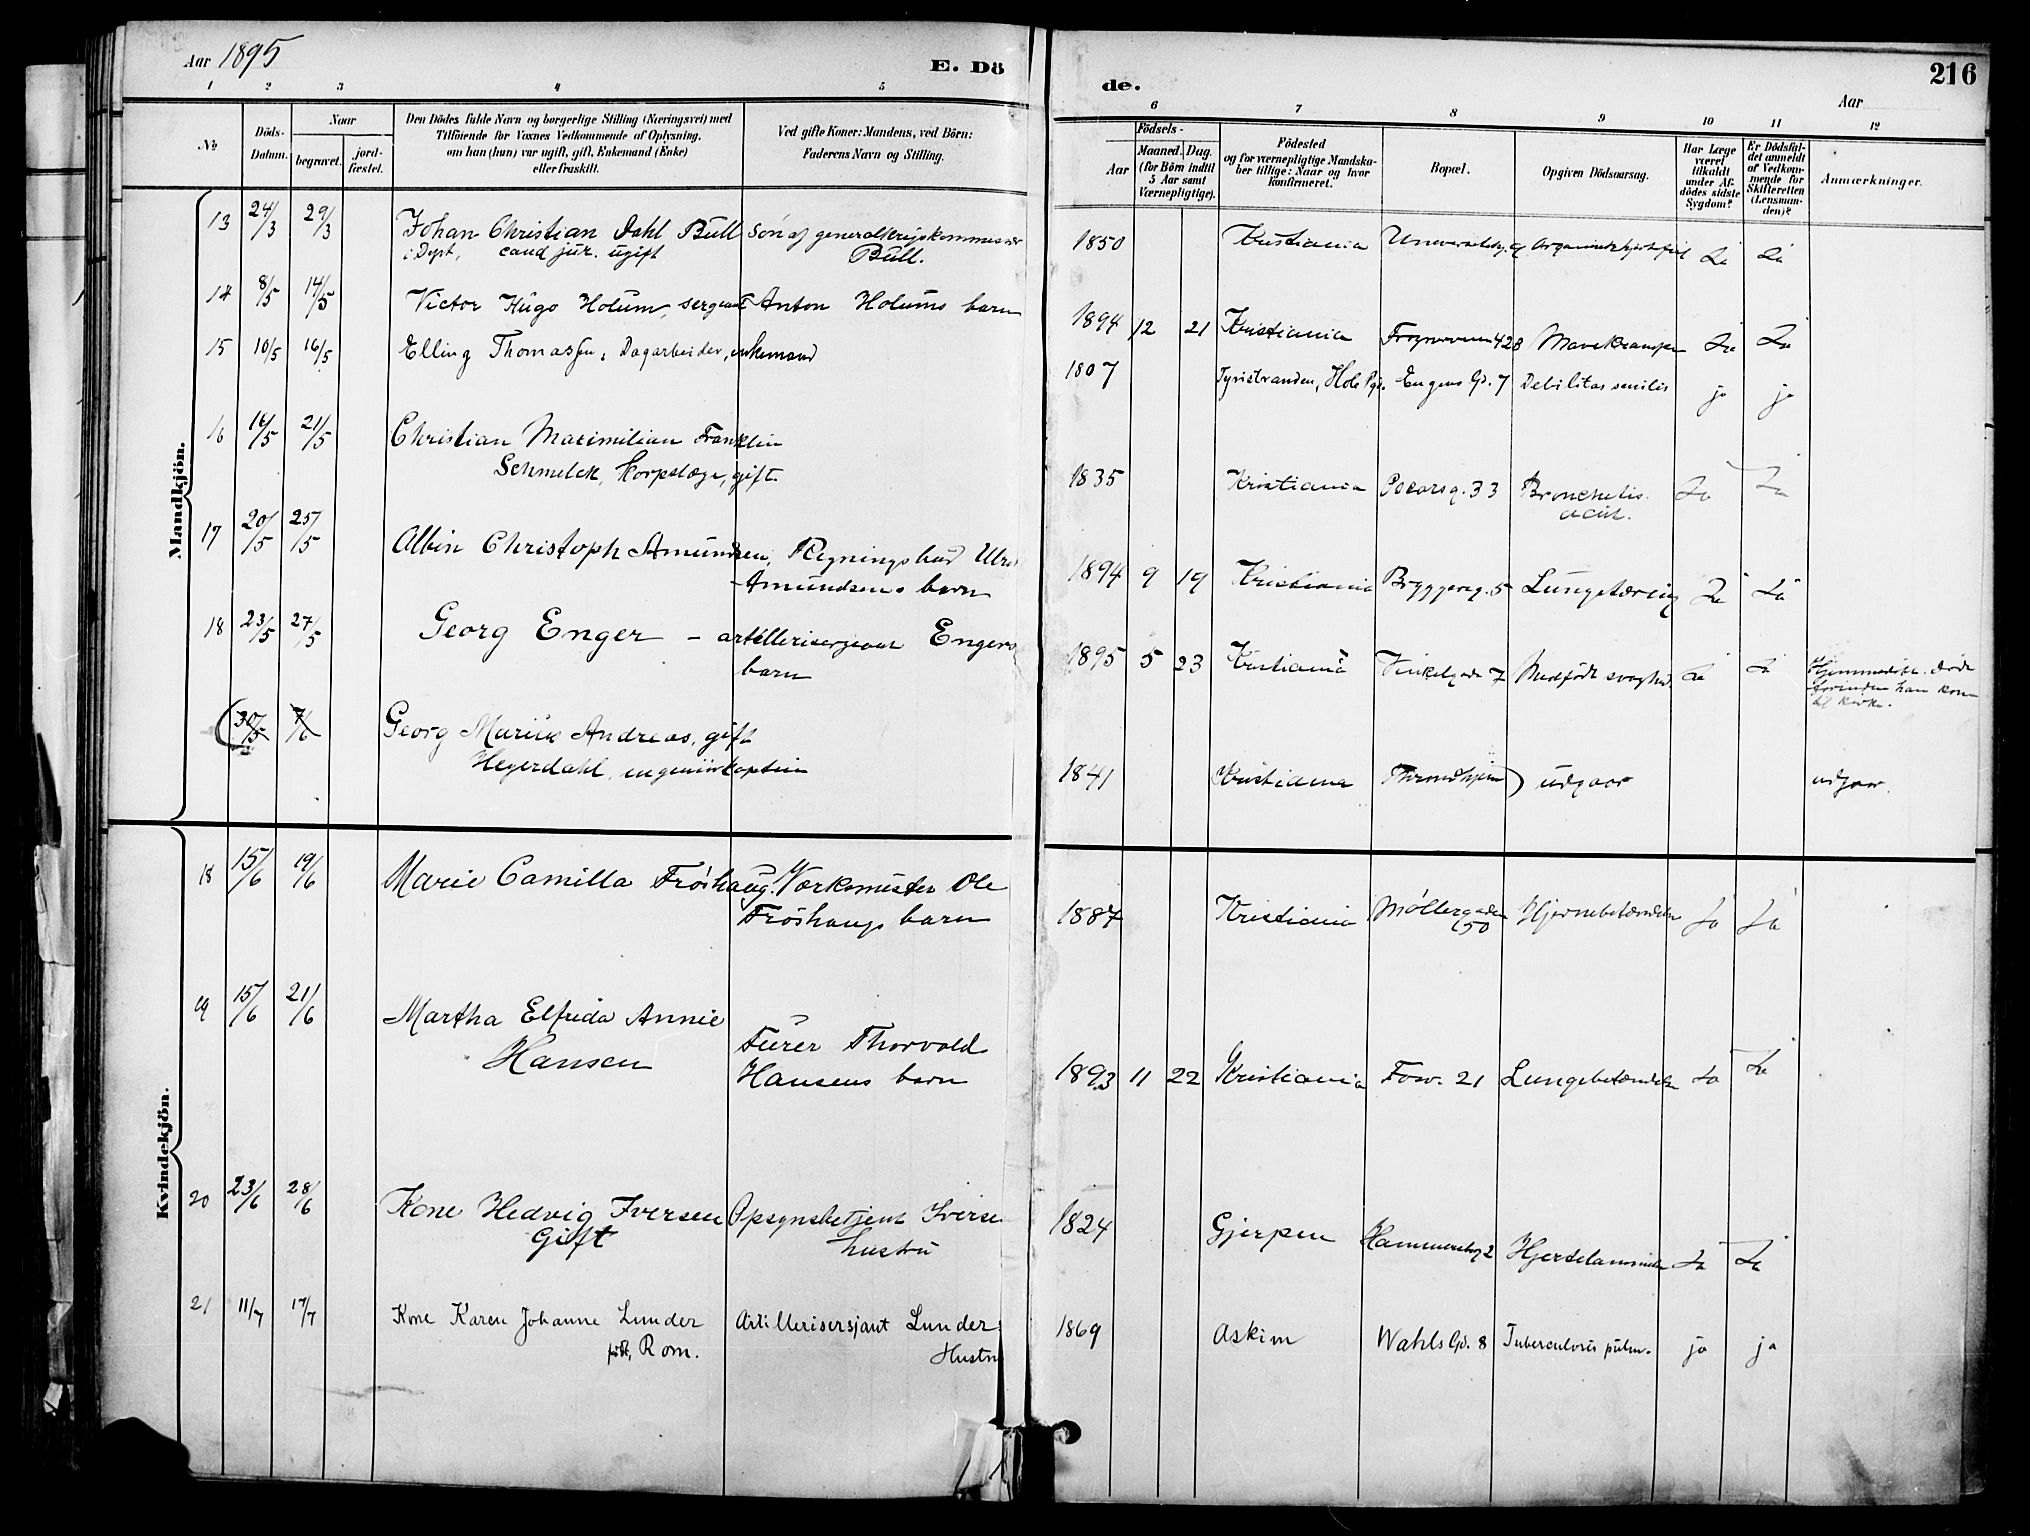 Aar 1895
E. Dö
de.
Aar
216
1 2 3 4 5 6 7 8 9 10 11 12
No
Döds-
Datum.
Naar
begravet.
jord-
fæstet.
Den Dödes fulde Navn og borgerlige Stilling (Næringsvei) med
Tilföiende for Voxnes Vedkommende af Oplysning.
om han (hun) var ugift, gift, Enkemand (Enke)
eller fraskilt.
Ved gifte Koner: Mandens, ved Börn:
Faderens Navn og Stilling.
Födsels-
Aar
Maaned.
Dag.
(for Börn indtil
5 Aar samt
Værnepligtige).
Födested
og for værnepligtige Mandska-
ber tillige: Naar og hvor
Konfirmeret.
Bopæl.
Opgiven Dödsaarsag.
Har Læge
været
tilkaldt
under Af-
dödes sidste
Sygdom?
Er Dödsfal-
det anmeldt
af Vedkom-
mende for
Skifteretten
(Lensman-
den)?
Anmærkninger.
Mandkjön.
13 24/3 29/3 Johan Christian Dahl Bull Søn af generalkrigskommissær 1850 Kristiania Ja Ja
i Dept, cand jur. ugift Bull.
14 8/5 14/5 Victor Hugo Holum, sergeant Anton Holums barn 1894 12 21 Kristiania Mavekrampe Ja Ja
15 10/5 16/5 Elling Thomassen, Dagarbeider, enkemand 1807 Tyristranden, Hole Pgd. Engens Gd. 7 Debilitas senilis ja ja
16 16/5 21/5 Christian Maximilian Franklin
Schmelck, Korpslæge, gift. 1835 Kristiania Oscarsg. 33 Bronchitis Ja Ja
acut.
17 20/5 25/5 Albin Christoph Amundsen, Regningsbud
Amundsens barn 1894 9 19 Kristiania Bryggerg. 5 Lungetæring Ja Ja
18 23/5 27/5 Georg Enger – artillerisergeant Engers 1895 5 23 Kristiania Vinkelgade 7 Medfødt svaghed Ja Ja Hjemmedøbt. døde
barn forinden han kom
til kirke.
(30/5 7/6 Georg Andreas, gift
Hegerdahl, ingeniørkaptein 1841 Kristiania Throndhjem) udgaar udgaar.
Kvindekjön.
18 15/6 19/6 Marie Camilla Frøshaug. Værksmester Ole
Frøshaugs barn 1887 Kristiania Møllergaden Hjernebetændelse Ja Ja
50
19 15/6 21/6 Martha Elfrida Annie
Hansen Furer Thorvald
Hansens barn 1893 11 22 Kristiania Fosv. 21 Lungebetændelse Ja Ja
20 23/6 28/6 Kone Hedvig Iversen Opsynsbetjent Iversen 1824 Gjerpen Hammersborg 2 Hjertelammelse Ja Ja
Gift hustru
21 11/7 17/7 Kone Karen Johanne Lunder Artillerisersjant Lunders 1869 Askim Wahls Gd. 8 Tuberculosis pulm. ja ja
født, Rom. Hustru